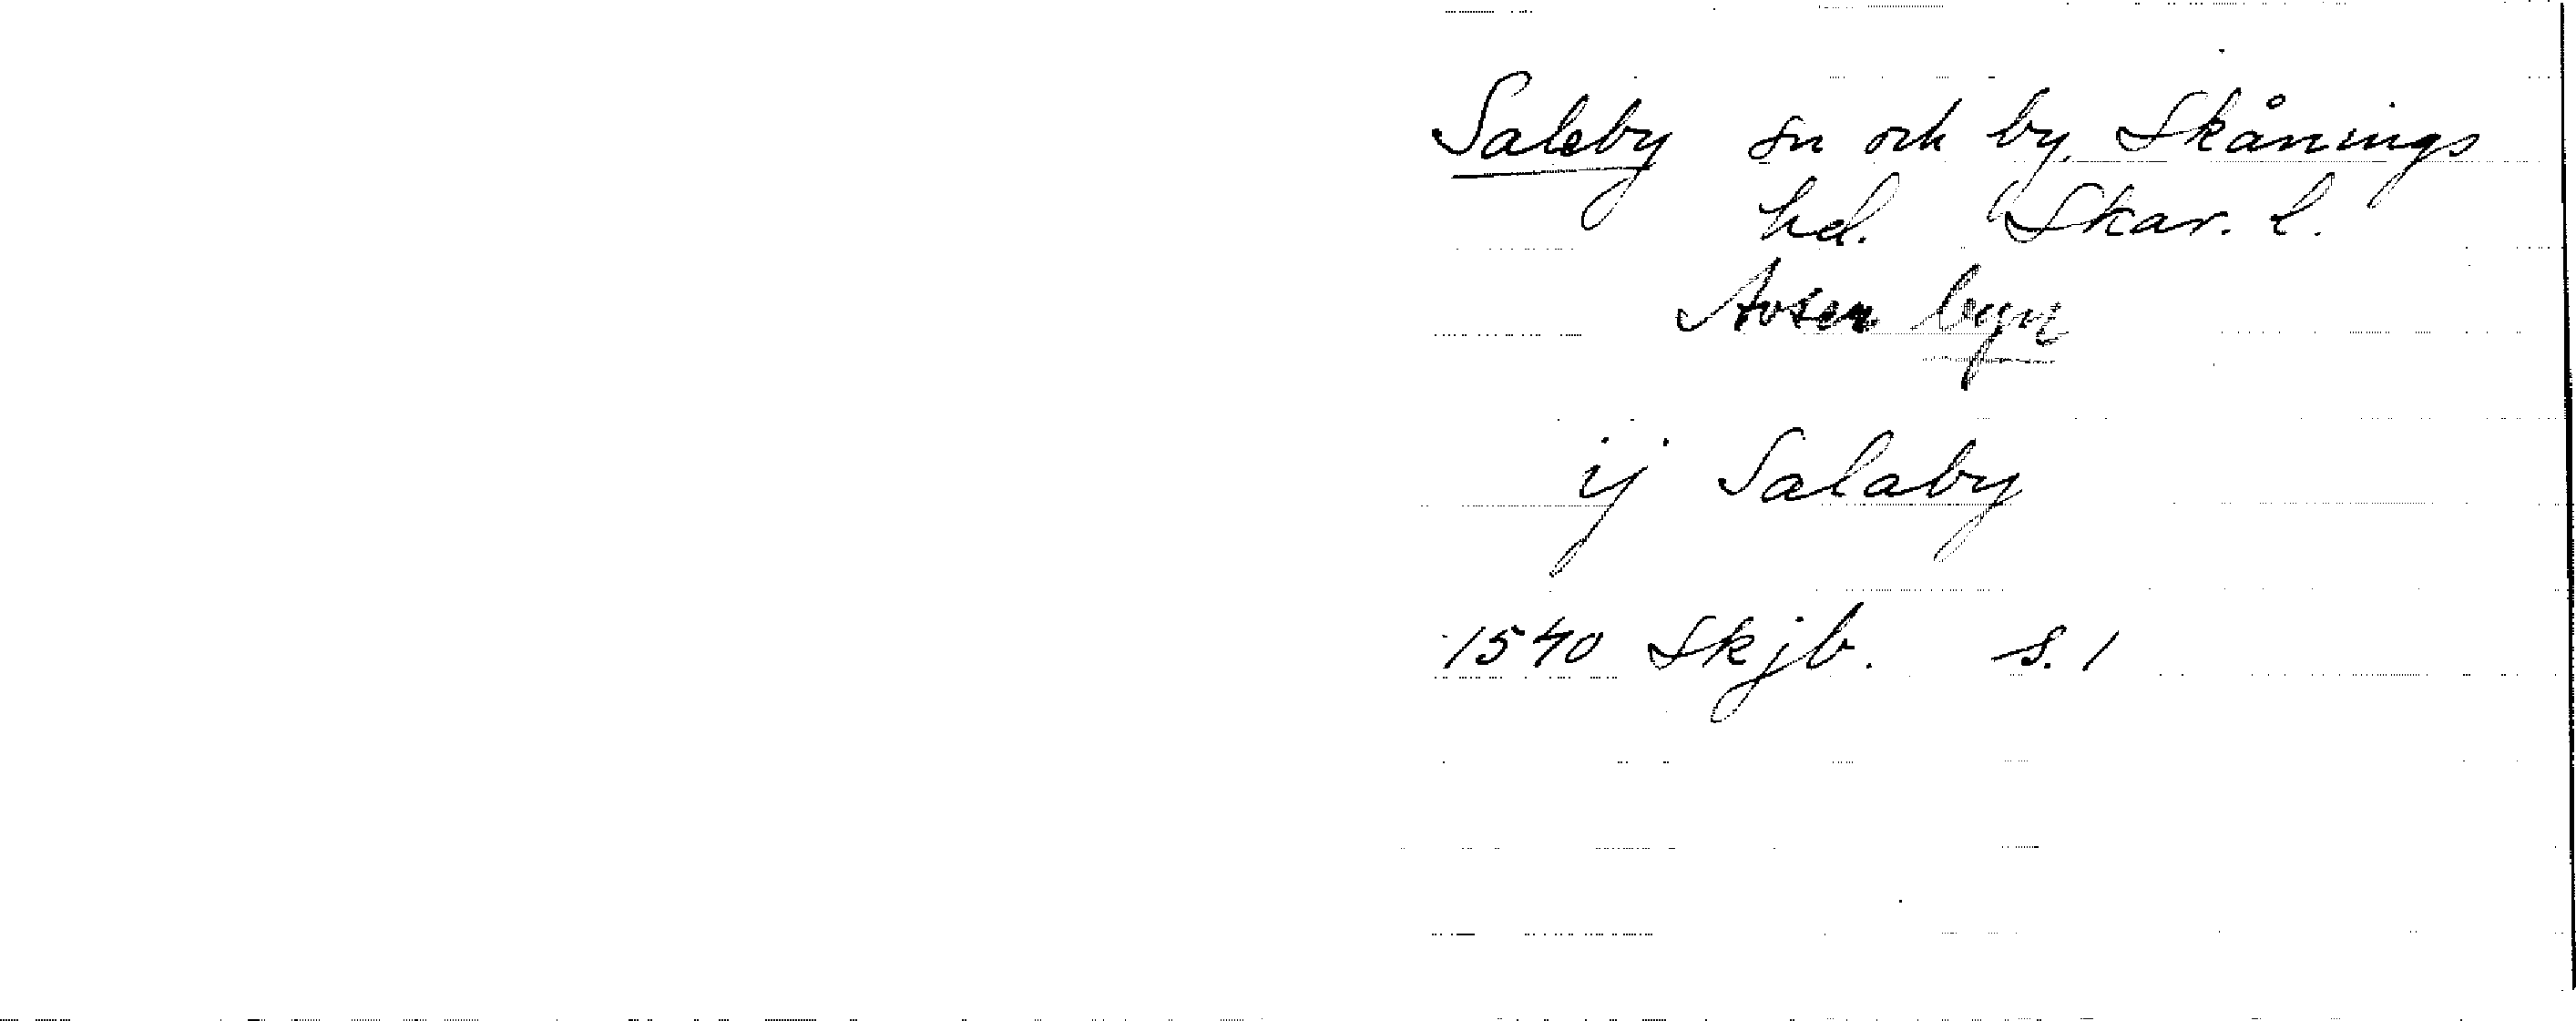 Saleby sn och by, Skånings
hd. Skar. l.
Avser byn
ij Salaby
1540 Skjb. s. 1